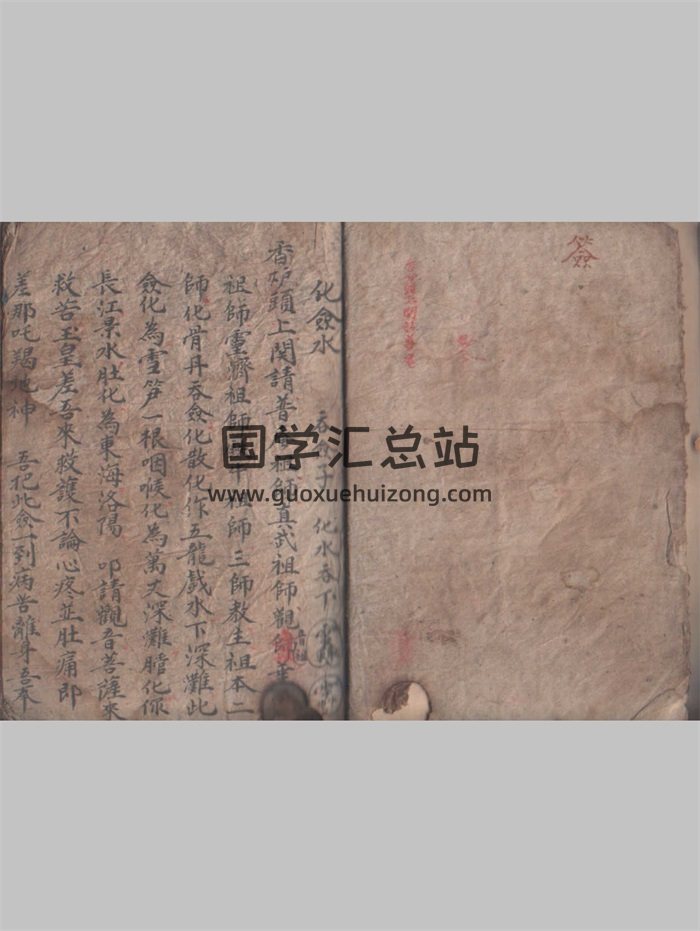 簽
化僉水 化水吞下
香炉頭上関請普
祖師真武祖師觀
祖師靈濟祖師 祖師三師教主祖本二
師化骨丹吞僉化散化作五龍戲水下深灘此
僉化為雪笋一根咽喉化為萬丈深灘膽化作
長江景水肚化為東海洛陽 叩請觀音菩薩來
救苦玉皇差吾來救護不論心疼並肚痛即
差那吒羯地神 吾把此僉一到病苦離身吾奉
国学汇总站
www.guoxuehuizong.com